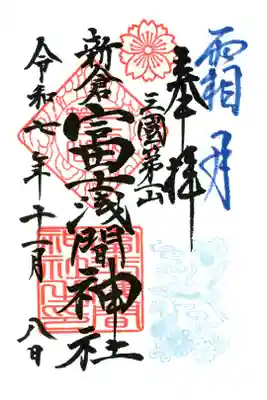 霜月
奉拝
三國第一山
新倉
冨士浅間神社
令和七年十一月八日